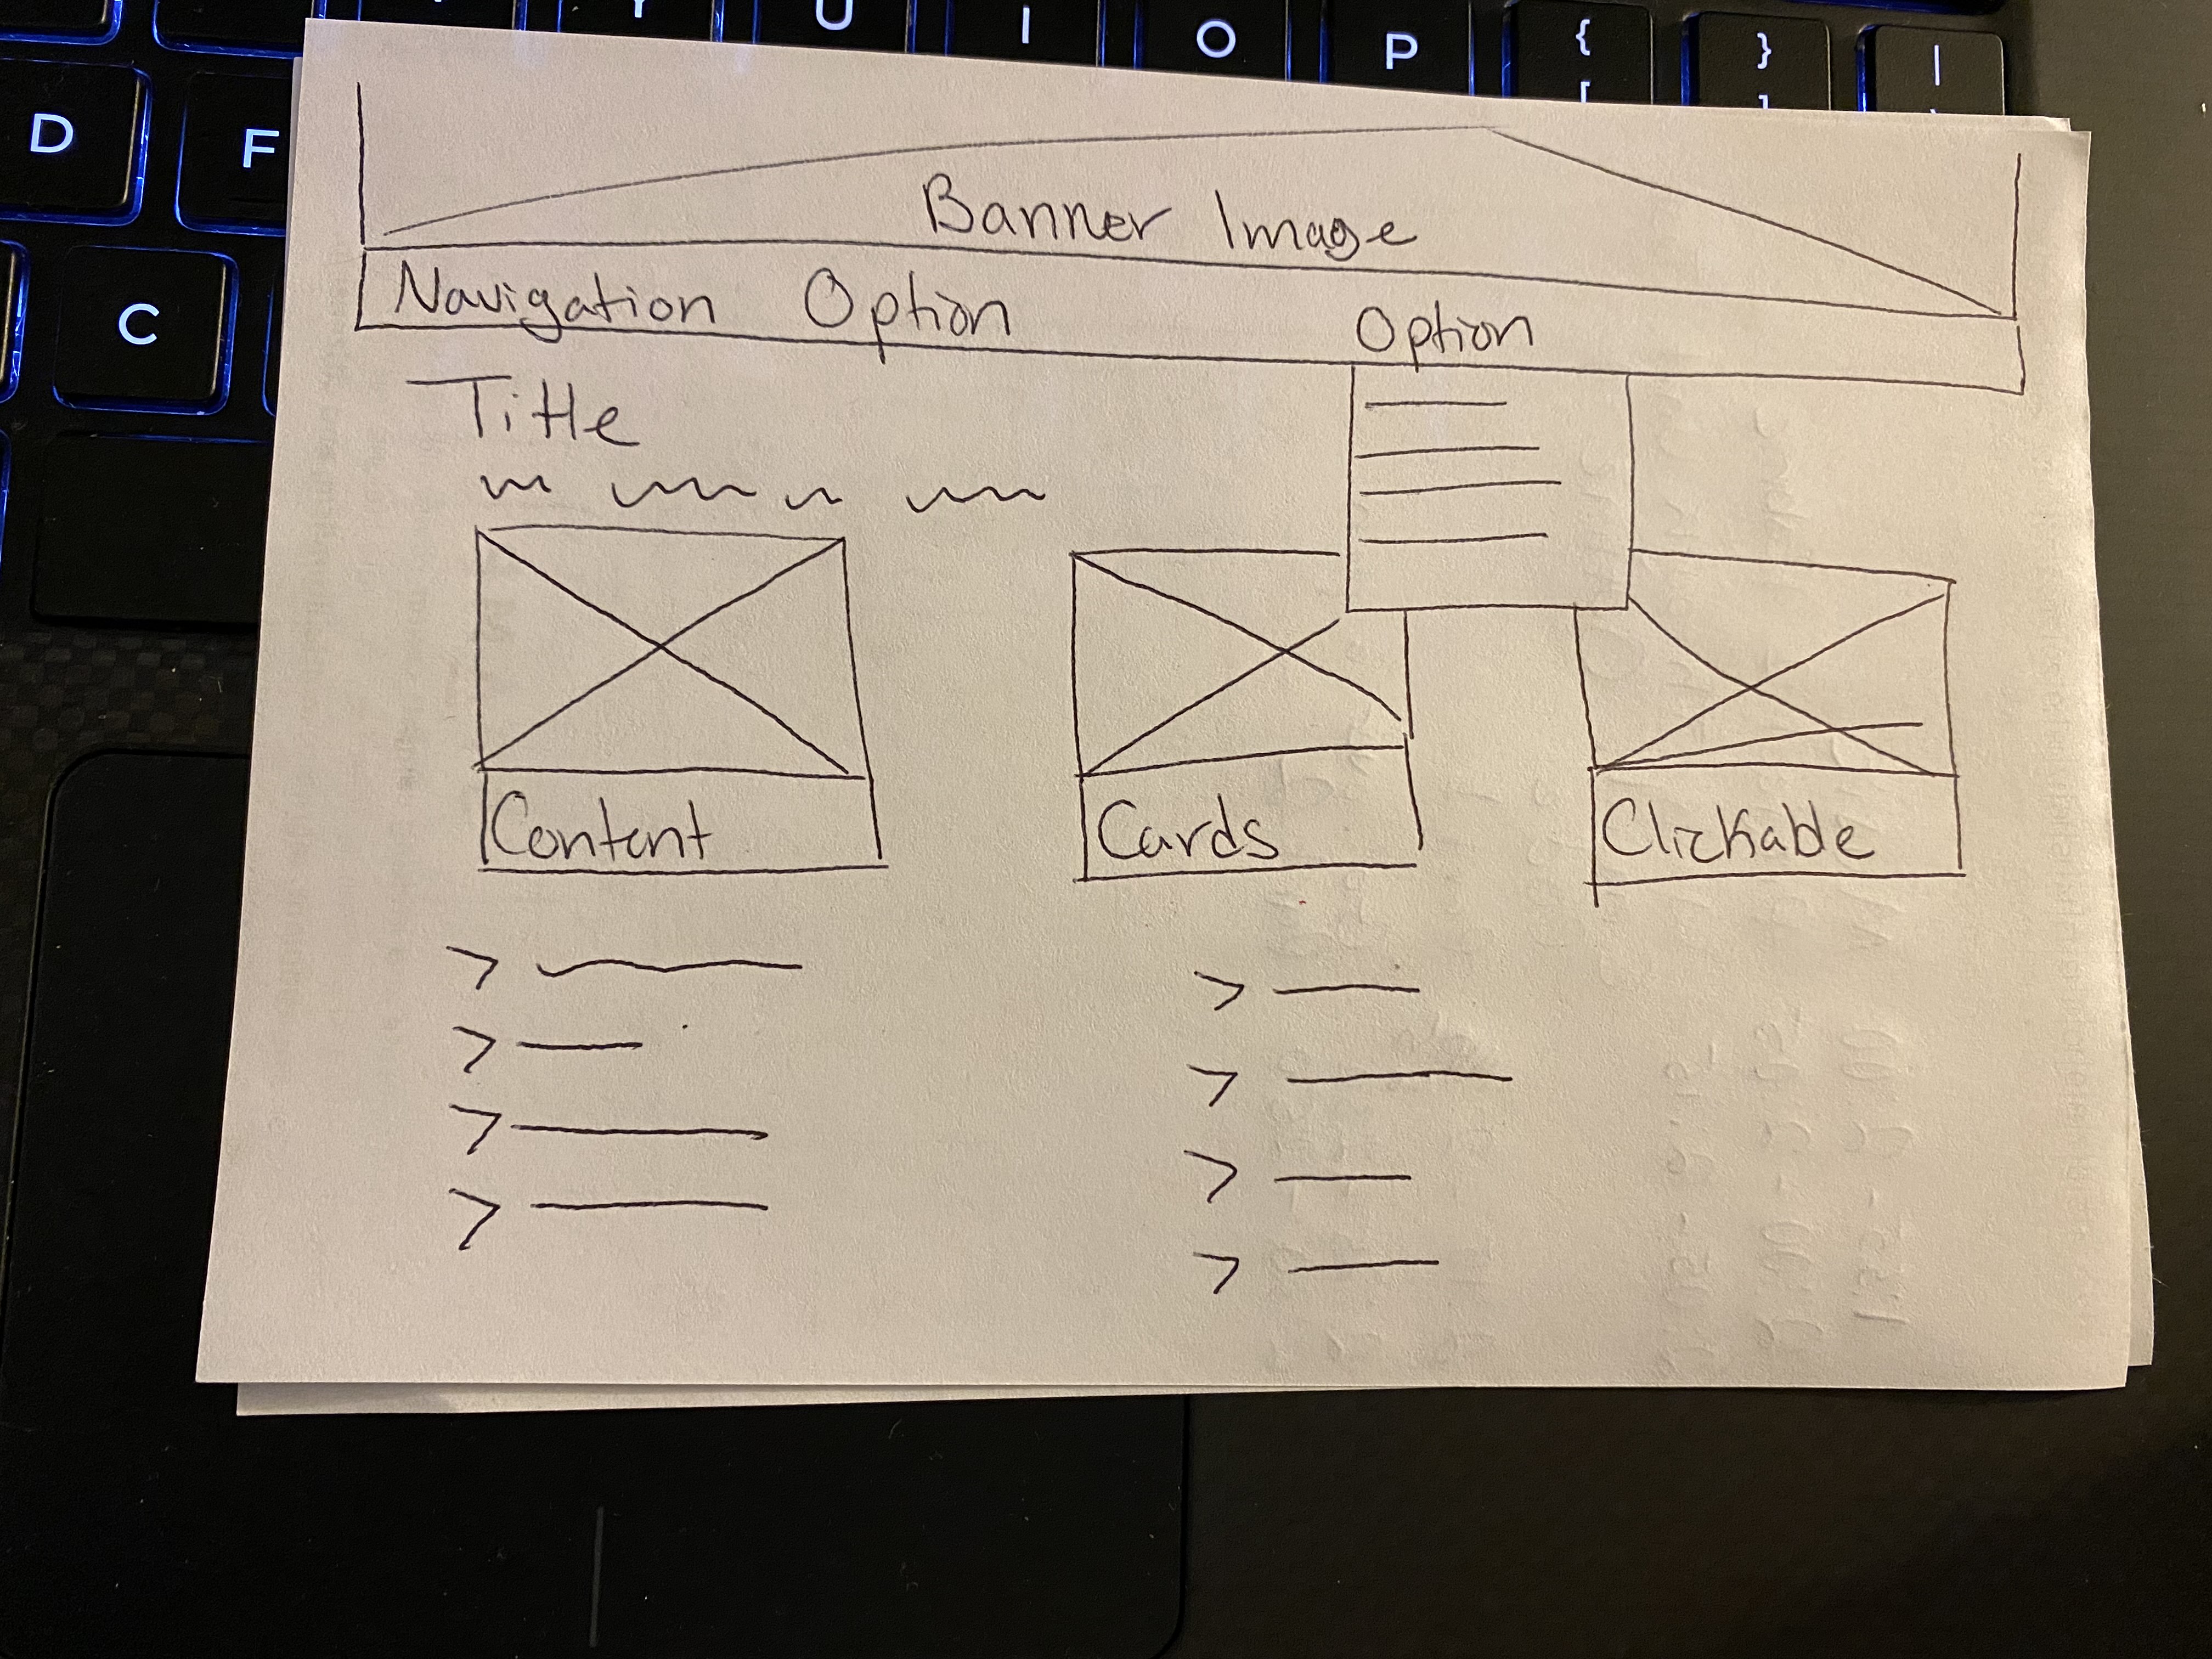 U I O P { }
[ ] |
D F
C
Banner Image
Navigation Option Option
Title
Content Cards Clickable